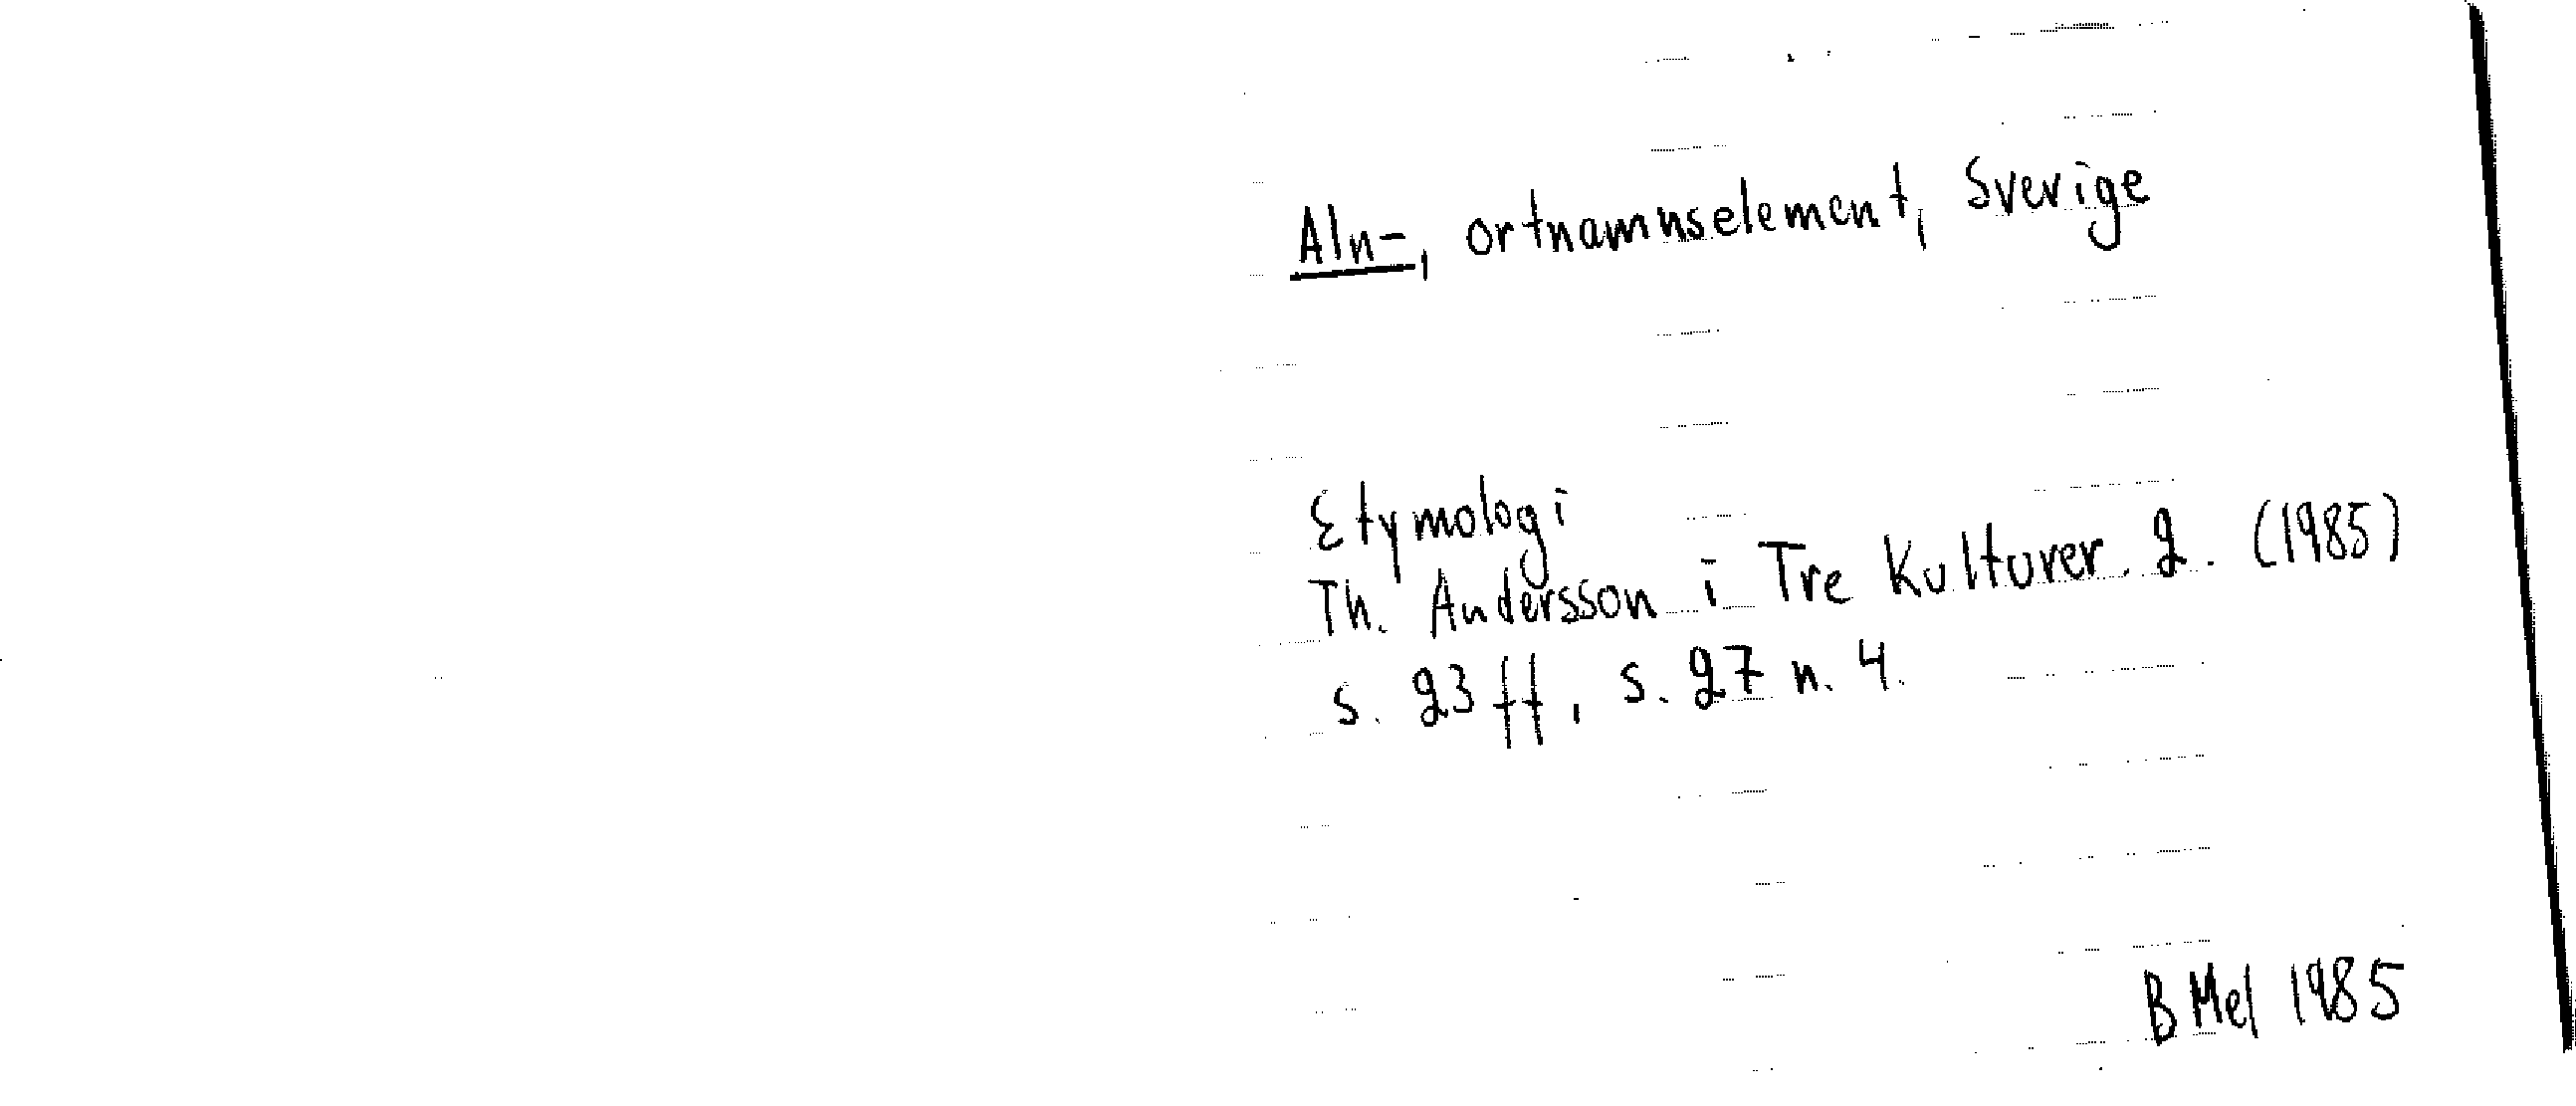 Aln-, ortnamnselement, Sverige
Etymologi
Th. Andersson i Tre Kulturer. 2. (1985)
s. 23 ff, s. 27 n. 4.
B Mel 1985